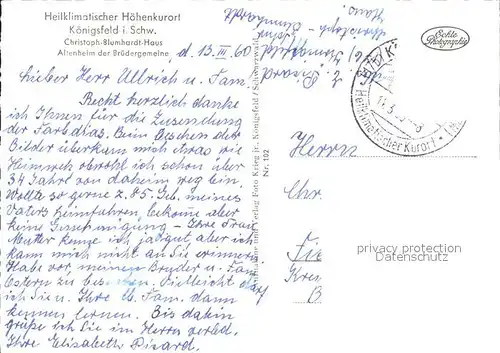 Heilklimatischer Höhenkurort
Königsfeld i. Schw.
Christoph-Blumhardt-Haus
Altenheim der Brüdergemeine
d. 13. III 60
Lieber Herr Ullrich u. Fam.!
Recht herzlich danke
ich Ihnen für die Zusendung
der Farbdias. Beim Besehen der
Bilder überkam mich etwas wie
Heimweh obwohl ich schon über
34 Jahre von daheim weg bin.
Wollte so gerne z. 85. Geb. meines
Vaters heimfahren, bekomme aber
keine – Ihre Frau
Mutter kenne ich ja gut, aber ich
kann mich nicht an Sie erinnern
Habe vor meinen Bruder u. Fam.
Ostern zu besuchen. Vielleicht darf
ich Sie u. Ihre lb. Fam. dann
kennen lernen. Bis dahin
grüße ich Sie im Herrn verbd.
Ihre Elisabeth Picard.
Aufnahme und Verlag Foto Krieg jr., Königsfeld / Schwarzwald
Nr. 102
Echte
Photographie
Heilklimatischer Kurort
Herrn
Chr.
Kre
B
privacy protection
Datenschutz